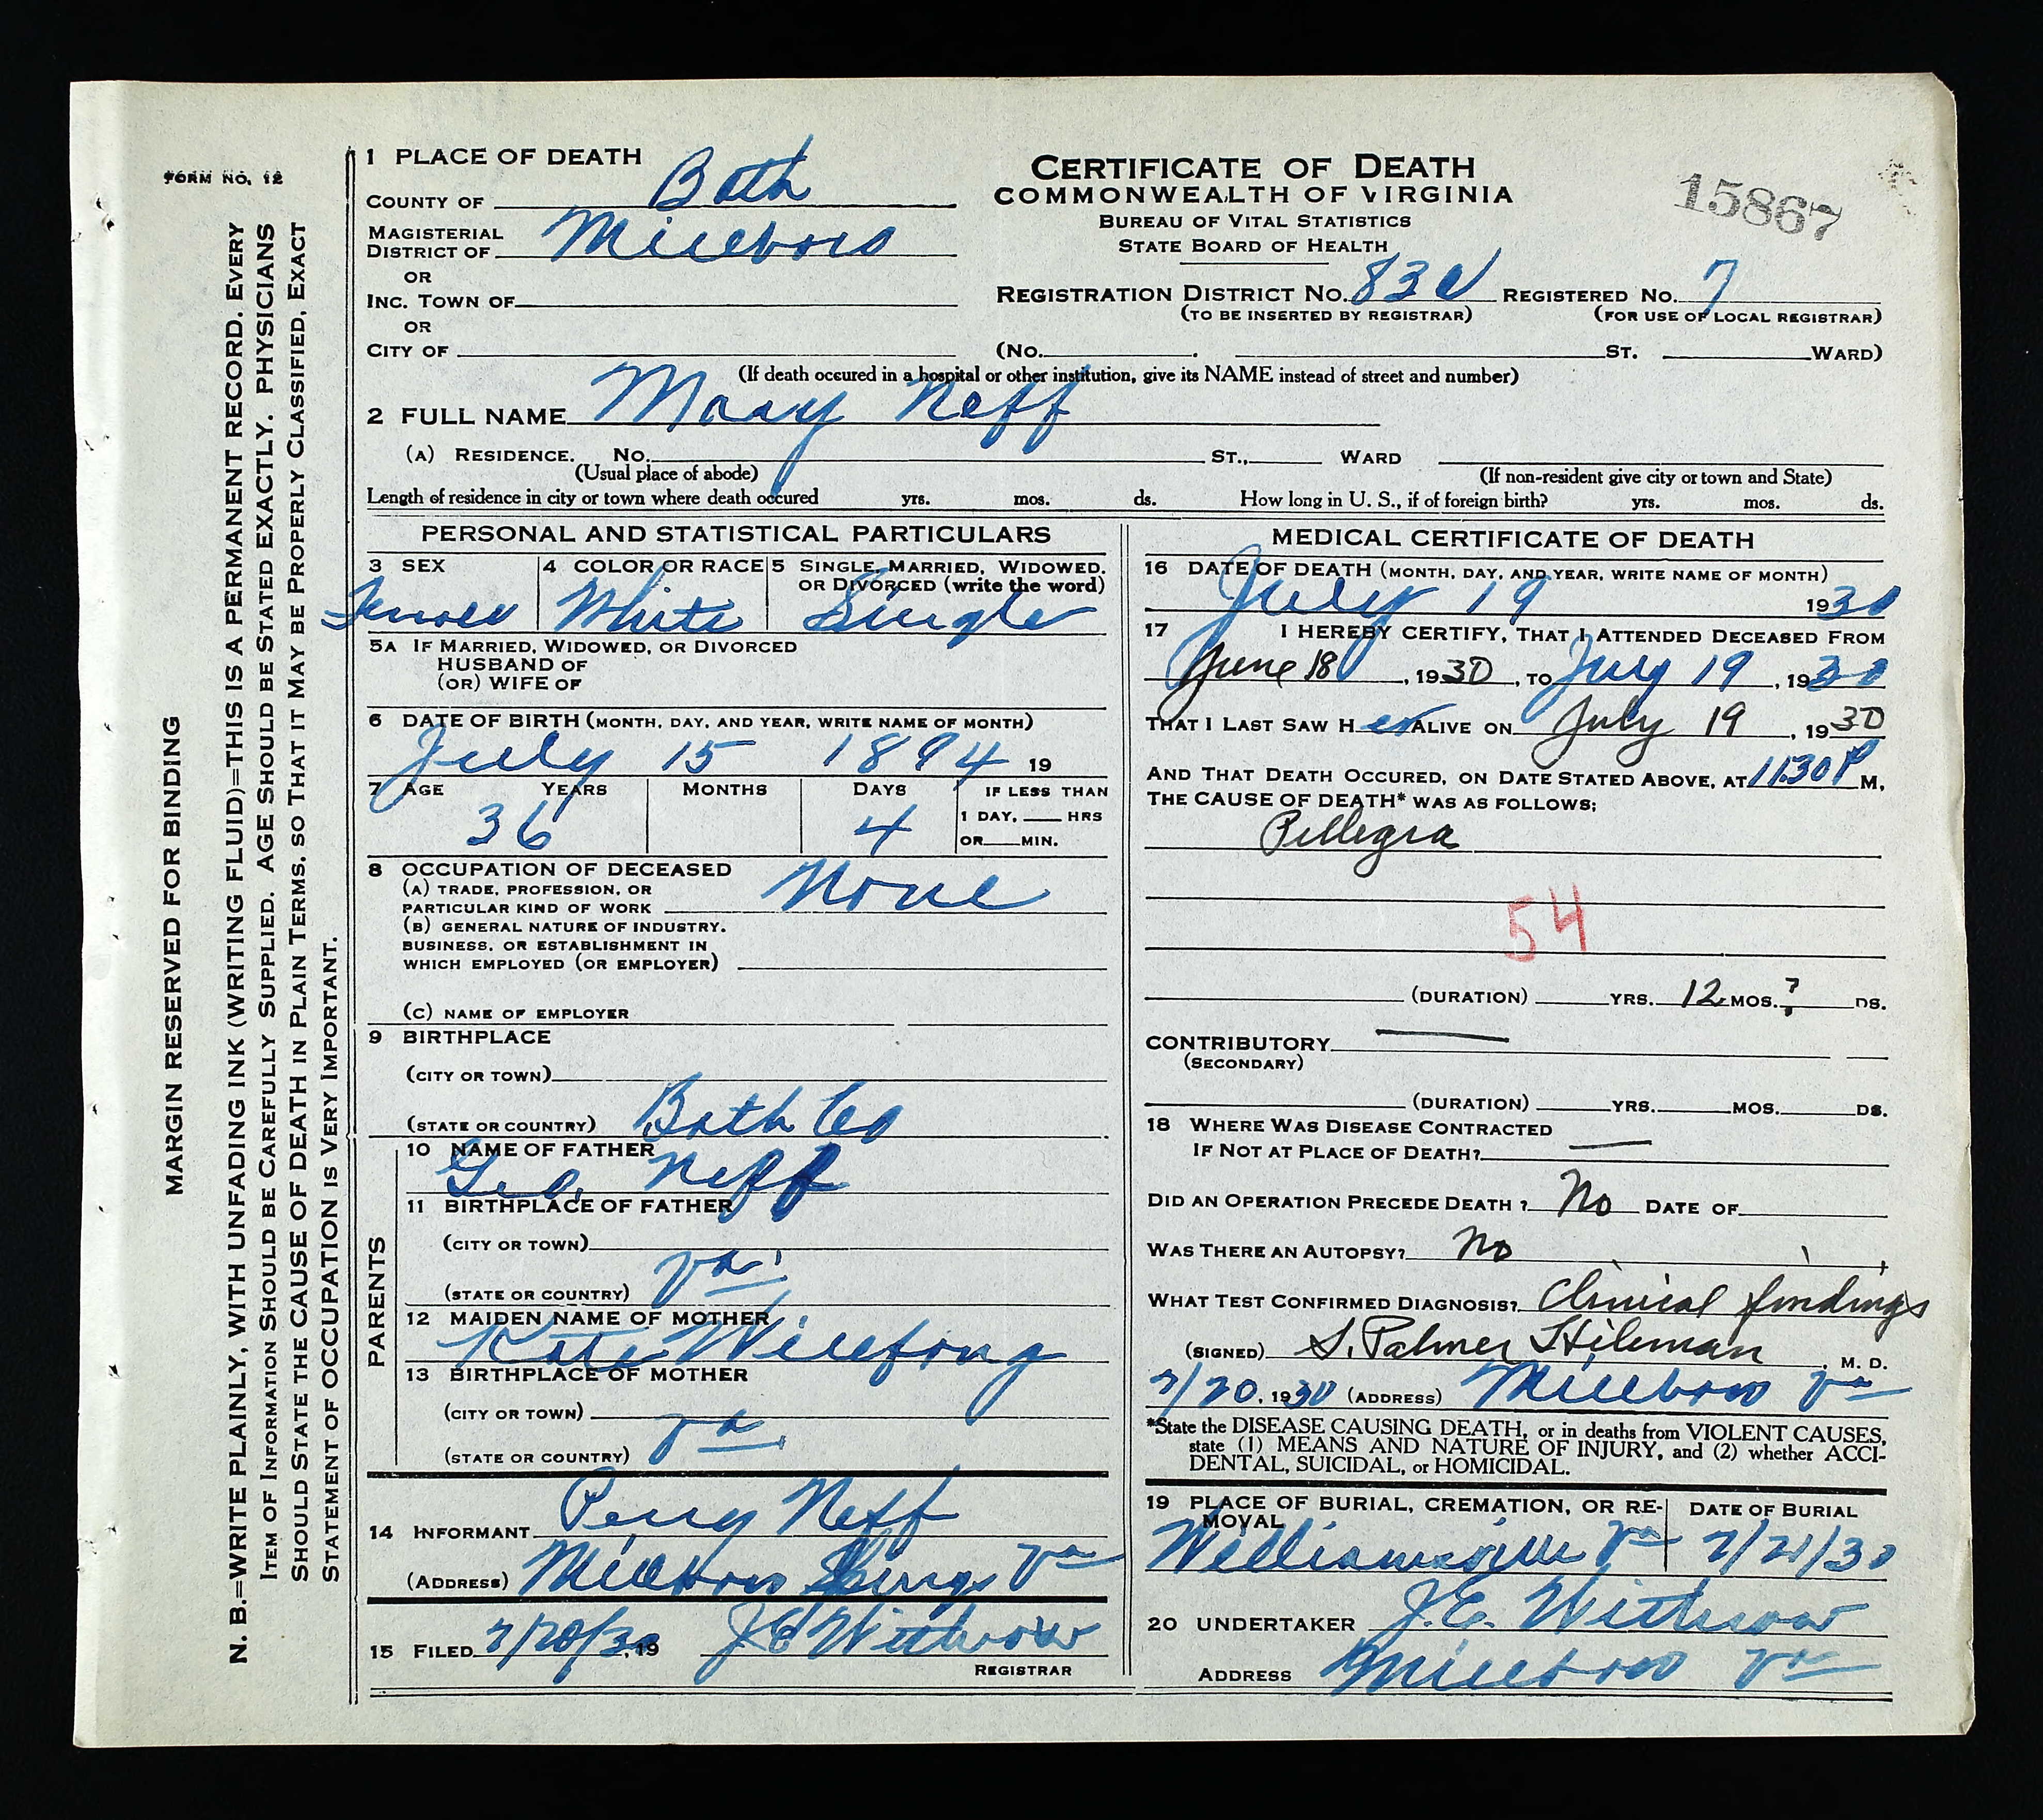 FORM NO. 12
MARGIN RESERVED FOR BINDING
N. B.=WRITE PLAINLY, WITH UNFADING INK (WRITING FLUID)=THIS IS A PERMANENT RECORD. EVERY
ITEM OF INFORMATION SHOULD BE CAREFULLY SUPPLIED. AGE SHOULD BE STATED EXACTLY. PHYSICIANS
SHOULD STATE THE CAUSE OF DEATH IN PLAIN TERMS, SO THAT IT MAY BE PROPERLY CLASSIFIED, EXACT
STATEMENT OF OCCUPATION IS VERY IMPORTANT.
1 PLACE OF DEATH
COUNTY OF Bath
MAGISTERIAL
DISTRICT OF Millboro
OR
INC. TOWN OF
OR
CITY OF
CERTIFICATE OF DEATH
COMMONWEALTH OF VIRGINIA
BUREAU OF VITAL STATISTICS
STATE BOARD OF HEALTH
15867
REGISTRATION DISTRICT NO. 83 REGISTERED NO. 7
(TO BE INSERTED BY REGISTRAR) (FOR USE OF LOCAL REGISTRAR)
(NO. ST. WARD)
(If death occured in a hospital or other institution, give its NAME instead of street and number)
2 FULL NAME Mary Neff
(A) RESIDENCE. NO. ST., WARD
(Usual place of abode) (If non-resident give city or town and State)
Length of residence in city or town where death occured yrs. mos. ds. How long in U. S., if of foreign birth? yrs. mos. ds.
PERSONAL AND STATISTICAL PARTICULARS
3 SEX 4 COLOR OR RACE 5 SINGLE, MARRIED, WIDOWED,
OR DIVORCED (write the word)
Female White Single
5A IF MARRIED, WIDOWED, OR DIVORCED
HUSBAND OF
(OR) WIFE OF
6 DATE OF BIRTH (MONTH, DAY, AND YEAR, WRITE NAME OF MONTH)
July 15 1894 19
7 AGE YEARS MONTHS DAYS IF LESS THAN
1 DAY, HRS
36 4 OR MIN.
8 OCCUPATION OF DECEASED
(A) TRADE, PROFESSION, OR
PARTICULAR KIND OF WORK None
(B) GENERAL NATURE OF INDUSTRY,
BUSINESS, OR ESTABLISHMENT IN
WHICH EMPLOYED (OR EMPLOYER)
(C) NAME OF EMPLOYER
9 BIRTHPLACE
(CITY OR TOWN)
(STATE OR COUNTRY) Bath Co
PARENTS
10 NAME OF FATHER
Geo. Neff
11 BIRTHPLACE OF FATHER
(CITY OR TOWN)
(STATE OR COUNTRY) Va.
12 MAIDEN NAME OF MOTHER
Kate Willfong
13 BIRTHPLACE OF MOTHER
(CITY OR TOWN)
(STATE OR COUNTRY) Va.
14 INFORMANT Perry Neff
(ADDRESS) Millboro Springs Va
15 FILED 7/20/30, 19 J E Withrow
REGISTRAR
MEDICAL CERTIFICATE OF DEATH
16 DATE OF DEATH (MONTH, DAY, AND YEAR, WRITE NAME OF MONTH)
July 19 1930
17 I HEREBY CERTIFY, THAT I ATTENDED DECEASED FROM
June 18, 1930, TO July 19, 1930
THAT I LAST SAW H er ALIVE ON July 19, 1930
AND THAT DEATH OCCURED, ON DATE STATED ABOVE, AT 11:30 P M,
THE CAUSE OF DEATH* WAS AS FOLLOWS:
Pellegra
54
(DURATION) YRS. 12 MOS. ? DS.
CONTRIBUTORY —
(SECONDARY)
(DURATION) YRS. MOS. DS.
18 WHERE WAS DISEASE CONTRACTED
IF NOT AT PLACE OF DEATH? —
DID AN OPERATION PRECEDE DEATH? No DATE OF
WAS THERE AN AUTOPSY? No
WHAT TEST CONFIRMED DIAGNOSIS? Clinical findings
(SIGNED) S. Palmer Hileman, M. D.
7/20, 1930 (ADDRESS) Millboro Va
*State the DISEASE CAUSING DEATH, or in deaths from VIOLENT CAUSES,
state (1) MEANS AND NATURE OF INJURY, and (2) whether ACCI-
DENTAL, SUICIDAL, or HOMICIDAL.
19 PLACE OF BURIAL, CREMATION, OR RE- DATE OF BURIAL
MOVAL
Williamsville Va 7/21/30
20 UNDERTAKER J.E. Withrow
ADDRESS Millboro Va